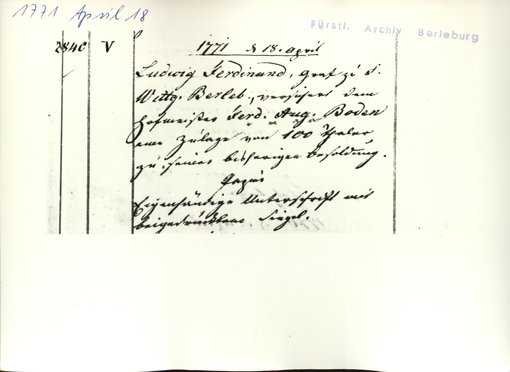 1771 April 18
Fürstl. Archiv Berleburg
2840 V 1771 d 18. april
Ludwig Ferdinand, Graf zu S.
Wittg. Berleb., versichert dem
Hofmeister Ferd. Aug. Boden
eine Zulage von 100 Thaler
zu seiner bisherigen Besoldung.
Papier
Eigenhändige Unterschrift mit
beigedrücktem Siegel.